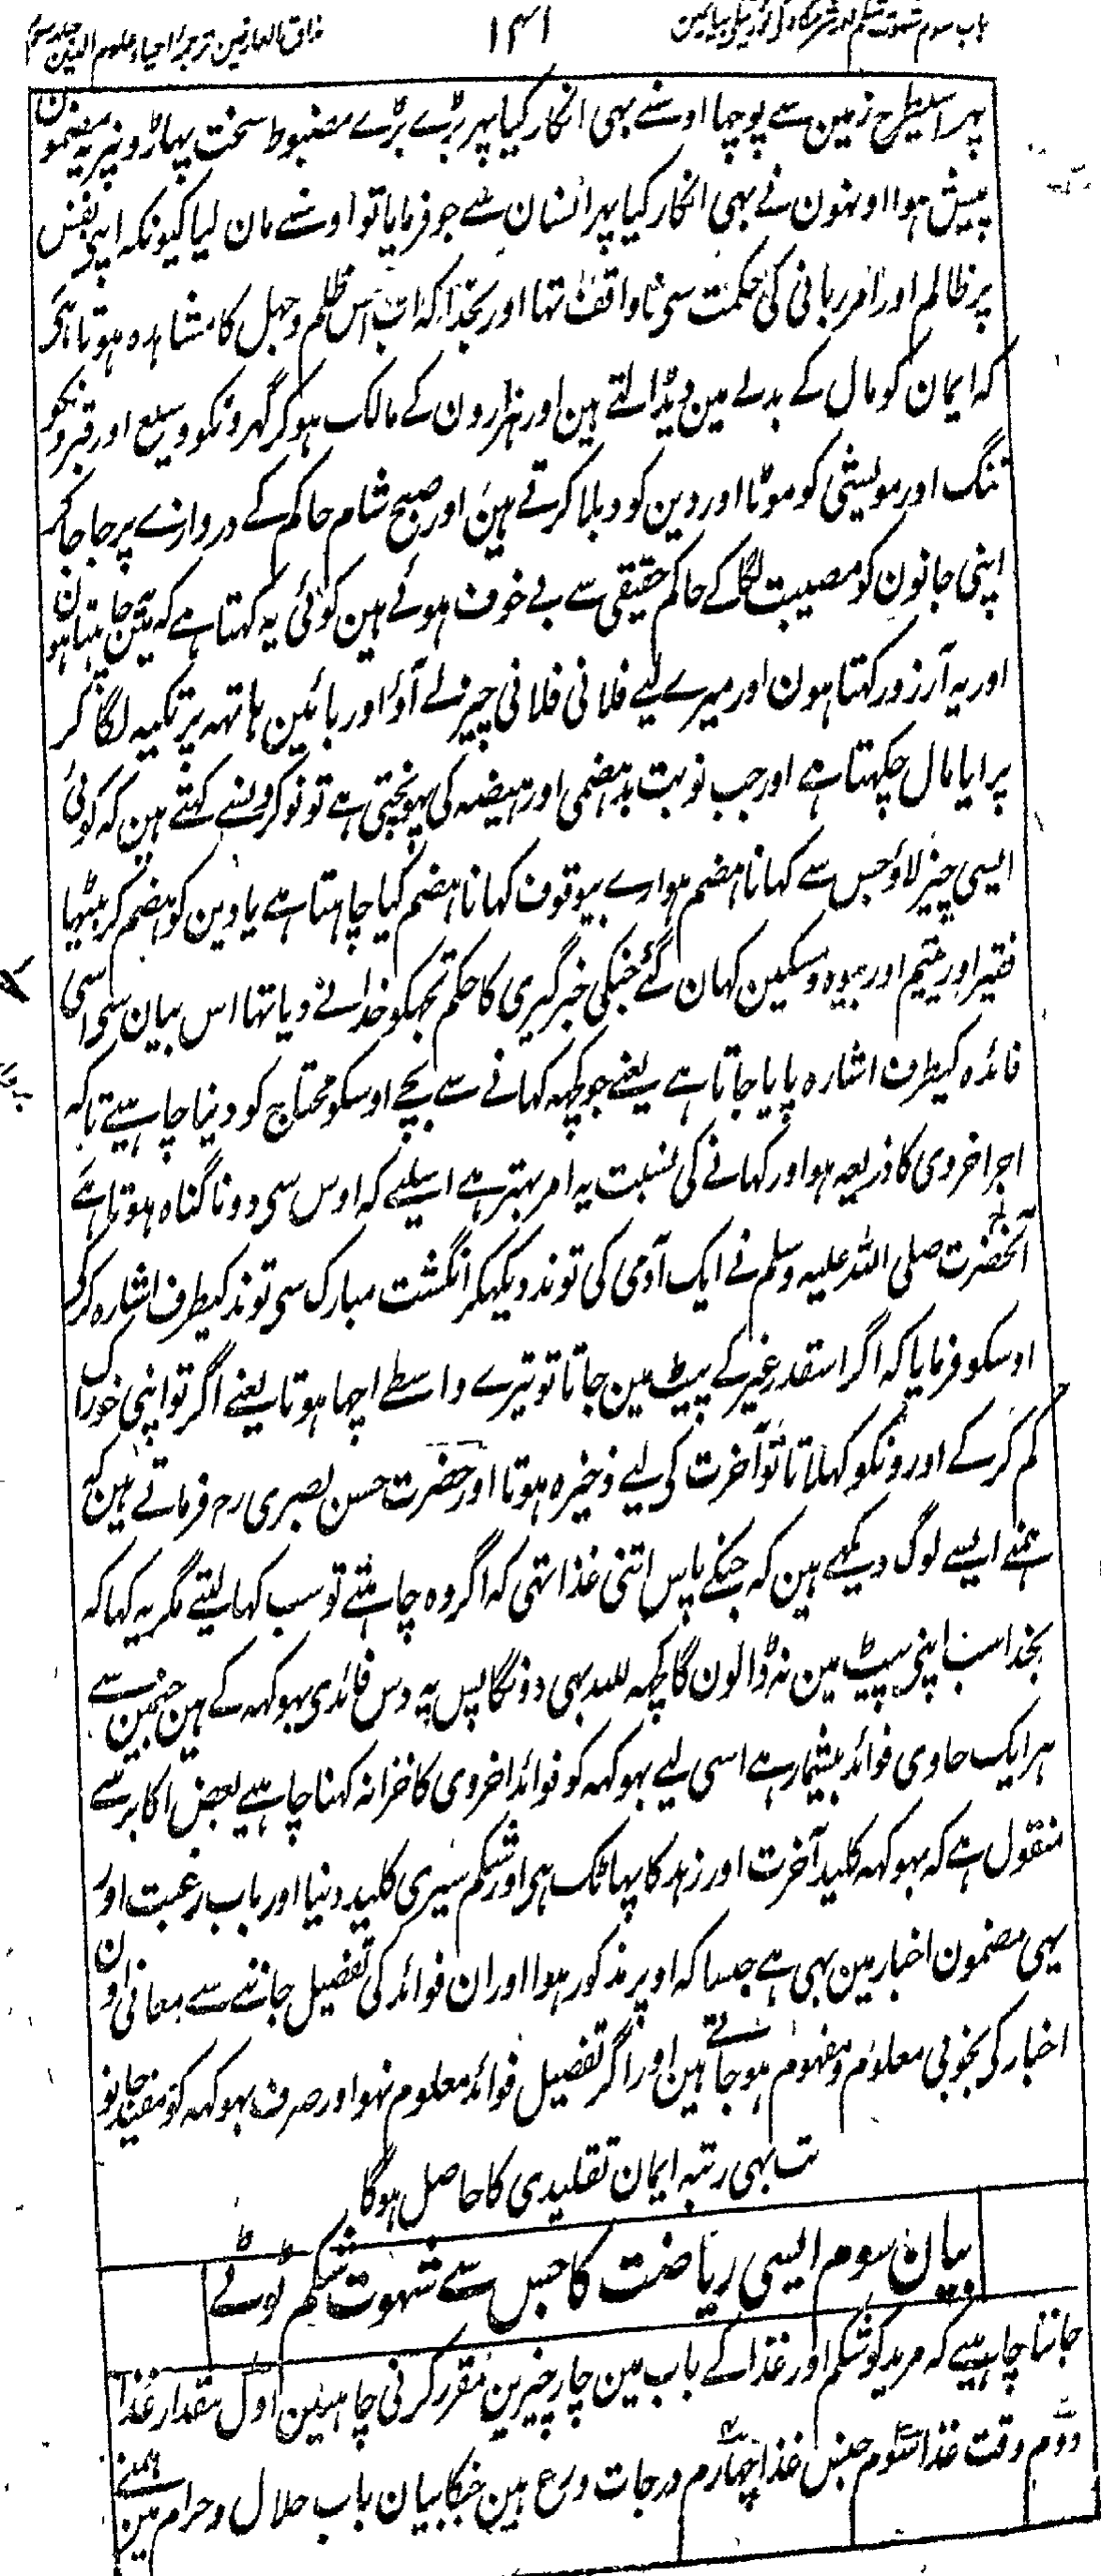 باب سوم شہوت شکم اور شرمگاہ کی توڑنیکی بیان مین ۱۳۱ مذاق العارفین ترجمہ احیاء علوم الدین جلد سوم
پہر اسیطرح زمین سے پوچہا اوسنے بہی انکار کیا پہر بڑے بڑے مضبوط سخت پہاڑونپر یہ مضمون
پیش ہوا اونہون نے بہی انکار کیا پہر انسان سے جو فرمایا تو اوسنے مان لیا کیونکہ اپنی نفس
پر ظالم اور امر ربانی کی حکمت سی ناواقف تہا اور بخدا کہ اب اس ظلم و جہل کا مشاہدہ ہوتا ہی
کہ ایمان کو مال کے بدلے مین دیڈالتے ہین اور ہزارون کے مالک ہو کر گہرونکو وسیع اور قبرونکو
تنگ اور مویشی کو موٹا اور دین کو دبلا کرتے ہین اور صبح شام حاکم کے دروازے پر جا جا کر
اپنی جانون کو مصیبت لگا کے حاکم حقیقی سے بے خوف ہوئے ہین کوئی یہ کہتا ہے کہ مین یہ چاہتا ہون
اور یہ آرزو رکہتا ہون اور میرے لیے فلانی فلانی چیز لے آؤ اور بائین ہاتہہ پر تکیہ لگا کر
پرایا مال چکہتا ہے اور جب نوبت بدہضمی اور ہیضہ کی پہونچتی ہے تو نوکرونسے کہتے ہین کہ کوئی
ایسی چیز لاؤ جس سے کہانا ہضم ہو ارے بیوقوف کہانا ہضم کیا چاہتا ہے یا دین کو ہضم کر بیٹہا
فقیر اور یتیم اور بیوہ و مسکین کہان گئے جنکی خبرگیری کا حکم تجہکو خدا نے دیا تہا اس بیان سی اسی
فائدہ کیطرف اشارہ پایا جاتا ہے یعنے جو کچہہ کہانے سے بچے اوسکو محتاج کو دینا چاہیے تاکہ
اجر اخروی کا ذریعہ ہو اور کہانے کی نسبت یہ امر بہتر ہے اسلیے کہ اوس سی دونا گناہ ہوتا ہے
آنحضرت صلی اللہ علیہ وسلم نے ایک آدمی کی توند دیکہکر انگشت مبارک سی توند کیطرف اشارہ کر کی
اوسکو فرمایا کہ اگر اسقدر غیر کے پیٹ مین جاتا تو تیرے واسطے اچہا ہوتا یعنے اگر تو اپنی خوراک
کم کر کے اورونکو کہلاتا تو آخرت کی لیے ذخیرہ ہوتا اور حضرت حسن بصری رح فرماتے ہین کہ
ہمنے ایسے لوگ دیکہے ہین کہ جنکے پاس اتنی غذا تہی کہ اگر وہ چاہتے تو سب کہا لیتے مگر یہ کہا کہ
بخدا سب اپنی پیٹ مین نہ ڈالون گا کچہہ للہ بہی دونگا پس یہ دس فائدی بہوکہہ کے ہین جنمین سے
ہر ایک حاوی فوائد بیشمار ہے اسی لیے بہوکہہ کو فوائد اخروی کا خزانہ کہنا چاہیے بعض اکابر سے
منقول ہے کہ بہوکہہ کلید آخرت اور زہد کا پہاٹک ہی اور شکم سیری کلید دنیا اور باب رغبت اور
یہی مضمون اخبار مین بہی ہے جیسا کہ اوپر مذکور ہوا اور ان فوائد کی تفصیل جاننے سے معانی اون
اخبار کی بخوبی معلوم و مفہوم ہو جاتے ہین اور اگر تفصیل فوائد معلوم نہو اور صرف بہوکہہ کو مفید جانو
تب بہی رتبہ ایمان تقلیدی کا حاصل ہوگا
بیان سوم ایسی ریاضت کا جس سے شہوت شکم ٹوٹے
جاننا چاہیے کہ مرید کو شکم اور غذا کے باب مین چار چیزین مقرر کرنی چاہئین اول مقدار غذا
دوم وقت غذا سوم جنس غذا چہارم درجات ورع ہین جنکا بیان باب حلال و حرام مین ہمنے